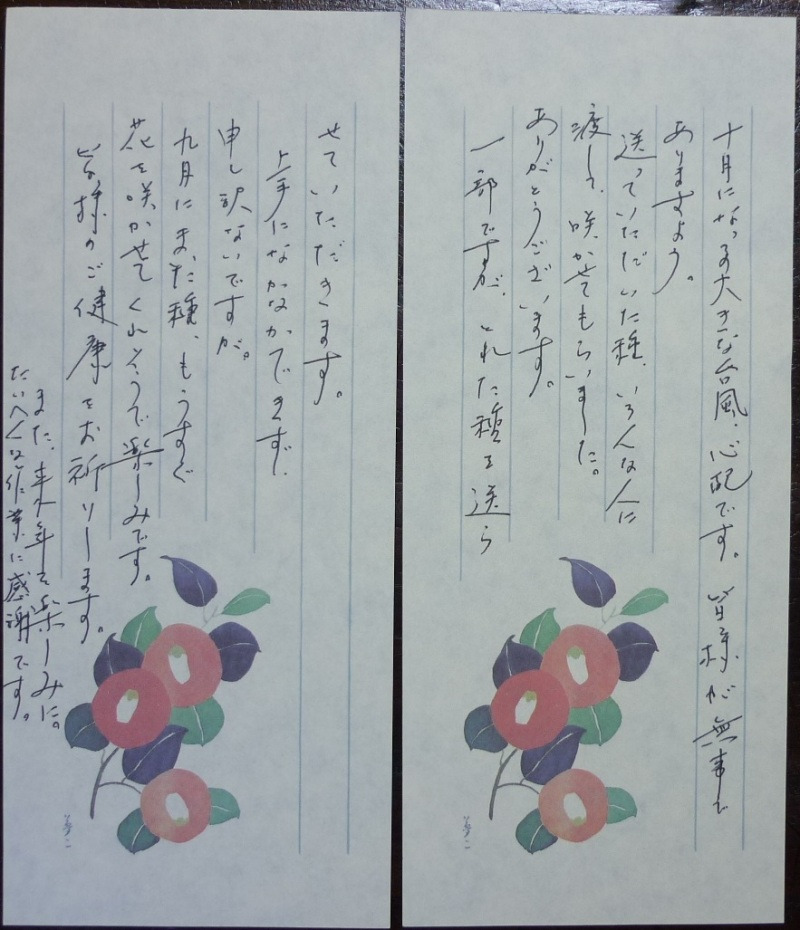 十月になっる大きな台風、心配です。皆様が無事で
ありますよう。
送っていただいた種、いろんな人に
渡して、咲かせてもらいました。
ありがとうございます。
一部ですが、とれた種を送ら
せていただきます。
上手になかなかできずに
申し訳ないですが。
九月にまいた種、もうすぐ
花を咲かせてくれそうで楽しみです。
皆様のご健康をお祈りします。
また、来年を楽しみに。
たいへんな作業に感謝です。
夢二
夢二